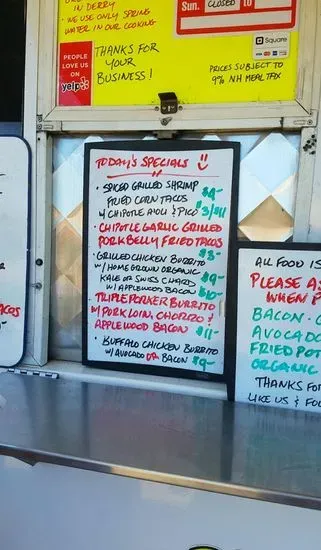 IN DERRY
- WE USE ONLY SPRING
WATER IN OUR COOKING
THANKS FOR
YOUR
BUSINESS!
PEOPLE
LOVE US
ON
yelp
Sun.
CLOSED
to
Square
PRICES SUBJECT TO
9% NH MEAL TAX
TODAY'S SPECIALS
· SPICED GRILLED SHRIMP
FRIED CORN TACOS $4-
W/ CHIPOTLE AIOLI & PICO 3/$11
· CHIPOTLE GARLIC GRILLED
PORK BELLY FRIED TACOS
$3-
· GRILLED CHICKEN BURRITO
W/ HOMEGROWN ORGANIC
KALE OR SWISS CHARD $9-
W/ APPLEWOOD BACON $10-
TRIPLE PORKER BURRITO
W/ PORK LOIN, CHORIZO &
APPLEWOOD BACON $11-
· BUFFALO CHICKEN BURRITO
W/ AVOCADO OR BACON $9-
ACOS
ALL FOOD IS
PLEASE A
WHEN
BACON
AVOCADO
FRIED POT
ORGANIC
THANKS FO
LIKE US & FO